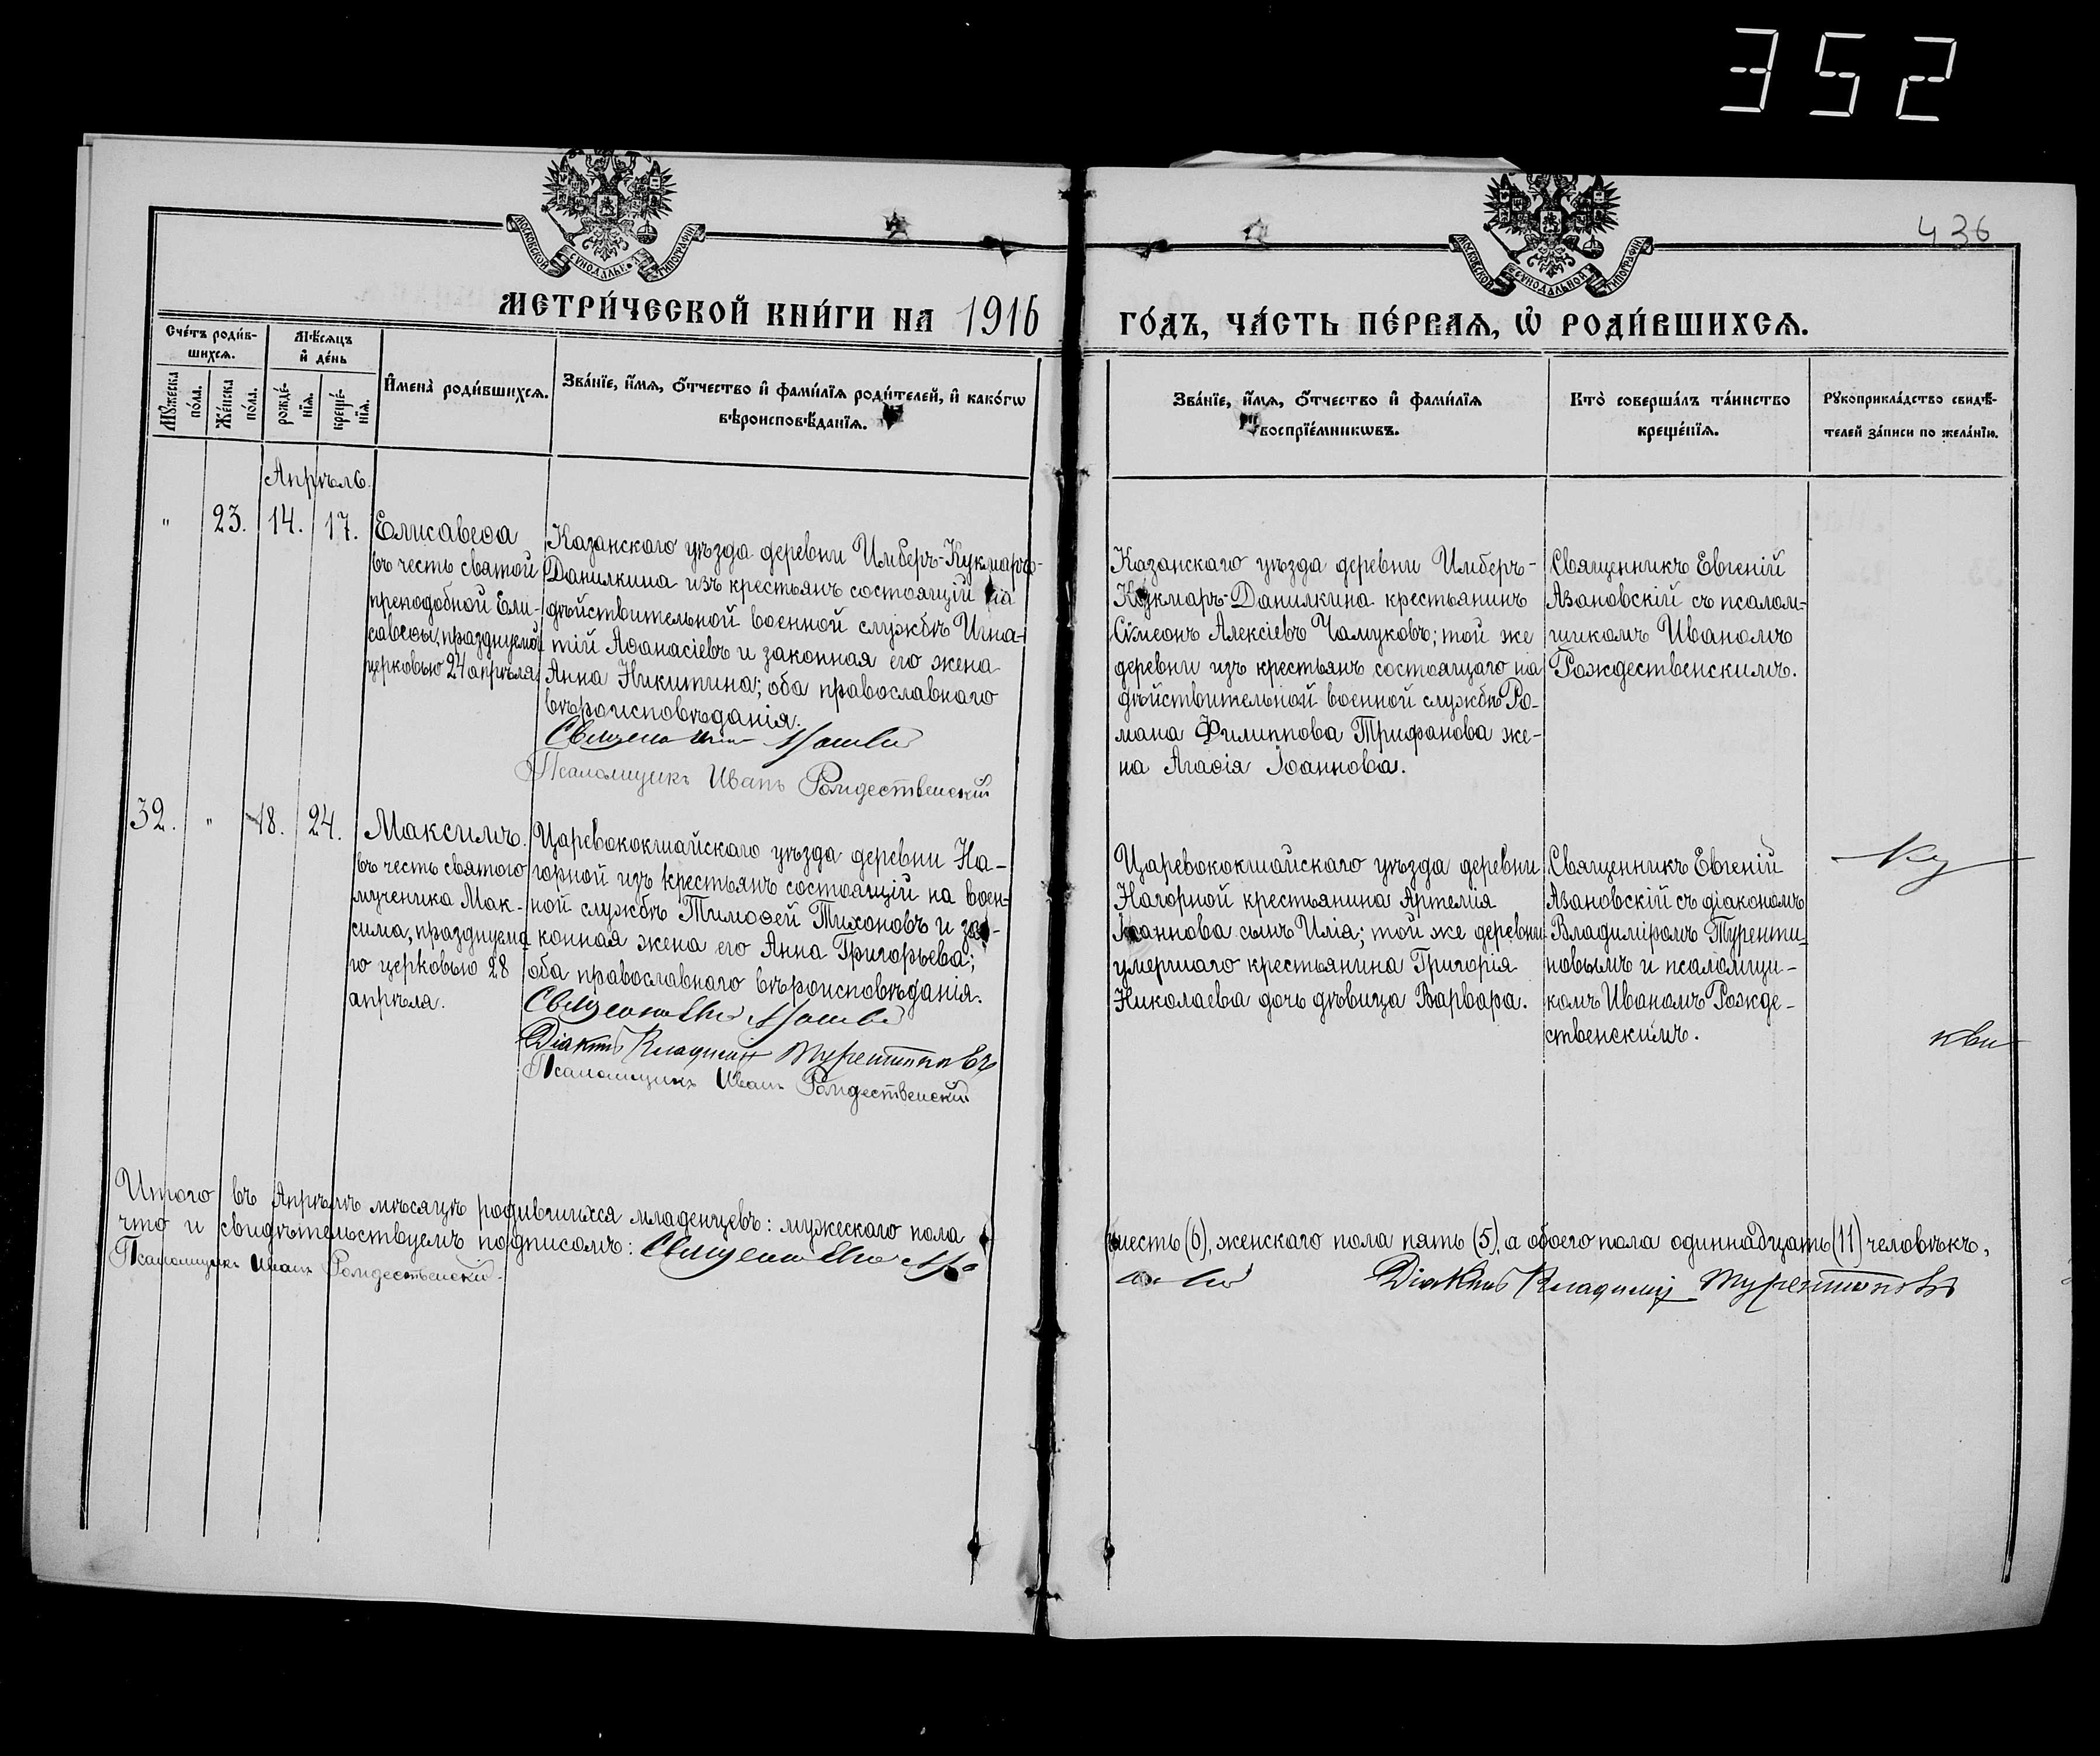 352
436
МОСКОВСКОЙ СѴНОДАЛЬНОЙ ТИПОГРАФІИ
МОСКОВСКОЙ СѴНОДАЛЬНОЙ ТИПОГРАФІИ
МЕТРИ́ЧЕСКОЙ КНИ́ГИ НА 1916
ГО́ДЪ, ЧА́СТЬ ПЕ́РВАЯ, Ѡ҆ РОДИ́ВШИХСЯ.
Сче́тъ роди́в-
шихся.
Мѣ́сяцъ
и҆ де́нь
Мꙋ́жеска
по́ла.
Же́нска
по́ла.
рожде́-
нїя.
креще́-
нїя.
И҆мена̀ роди́вшихся.
Зва́нїе, и҆́мя, ѻ҆́тчество и҆ фами́лїя роди́телей, и҆ како́гѡ
вѣроисповѣ́данїя.
Зва́нїе, и҆́мя, ѻ҆́тчество и҆ фами́лїя
воспрїе́мникѡвъ.
Кто̀ соверша́лъ та́инство
креще́нїя.
Рꙋкоприкла́дство свидѣ́-
телей за́писи по жела́нїю.
Апрѣль.
" 23. 14. 17.
Елисавеѳа
въ честь святой
преподобной Ели-
савеѳы, празднуемой
церковью 24 апрѣля.
Казанскаго уѣзда деревни Имберъ-Кукмаръ-
Данилкина изъ крестьянъ состоящій на
дѣйствительной военной службѣ Игна-
тій Аѳанасіевъ и законная его жена
Анна Никитина; оба православнаго
вѣроисповѣданія.
Псаломщикъ Иванъ Рождественскій
Казанскаго уѣзда деревни Имберъ-
Кукмаръ-Данилкина крестьянинъ
Сѵмеонъ Алексіевъ Чамуковъ; той же
деревни изъ крестьянъ состоящаго на
дѣйствительной военной службѣ Ро-
мана Филиппова Трифанова же-
на Агаѳія Іоаннова.
Священникъ Евгеній
Азановскій съ псалом-
щикомъ Иваномъ
Рождественскимъ.
32. " 18. 24.
Максимъ.
въ честь святого
мученика Мак-
сима, празднуема
го церковью 28
апрѣля.
Царевококшайскаго уѣзда деревни На-
горной изъ крестьянъ состоящій на воен-
ной службѣ Тимоѳей Тихоновъ и за-
конная жена его Анна Григорьева;
оба православнаго вѣроисповѣданія.
Діаконъ Владиміръ Турентиновъ
Псаломщикъ Иванъ Рождественскій
Царевококшайскаго уѣзда деревни
Нагорной крестьянина Артемія
Іоаннова сынъ Илія; той же деревни
умершаго крестьянина Григорія
Николаева дочь дѣвица Варвара.
Священникъ Евгеній
Азановскій съ діакономъ
Владиміромъ Туренти-
новымъ и псаломщи-
комъ Иваномъ Рожде-
ственскимъ.
Итого въ Апрѣлѣ мѣсяцѣ родившихся младенцевъ: мужескаго пола шесть (6), женскаго пола пять (5), а обоего пола одиннадцать (11) человѣкъ,
что и свидѣтельствуемъ подписомъ: Діаконъ Владиміръ Турентиновъ
Псаломщикъ Иванъ Рождественскій.